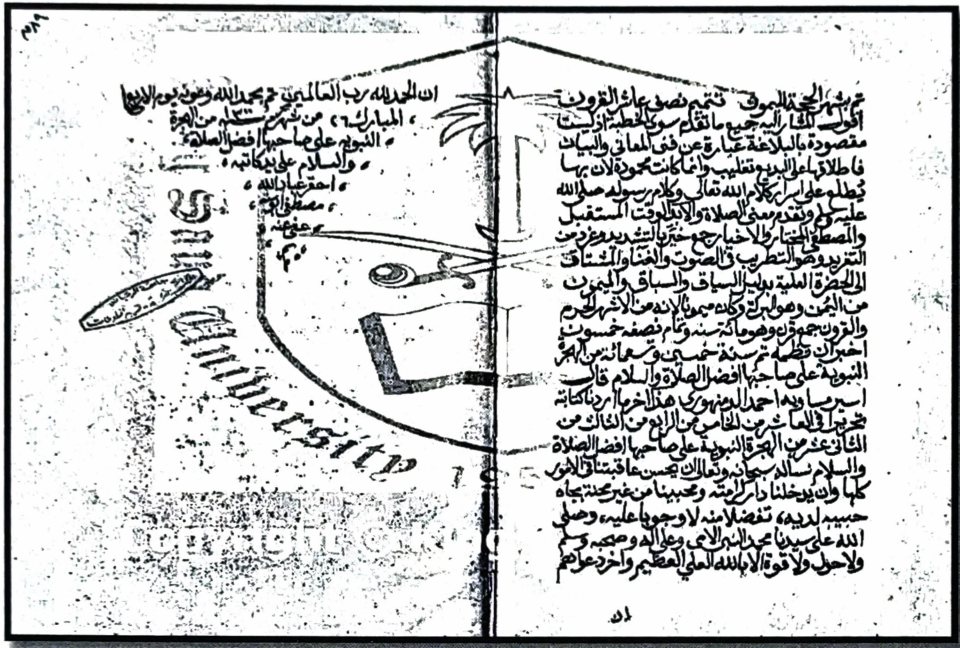 تم بشهر الحجة الميمون تتميم نصف عاشر القرون
اقول المشار اليه جميع ما تقدم سوى الخطبة اذ ليست
مقصودة بالبلاغة عبارة عن فنى المعانى والبيان
فاطلاقها على البديع تغليب وانما كانت محمودة لان بها
يُطلع على اسرار كلام الله تعالى وكلام رسوله صلى الله
عليه وسلم وتقدم معنى الصلاة والابد الوقت المستقبل
والمصطفى المختار والاخيار جمع خيّر بالتشديد وغرد من
التغريد وهو التطريب فى الصوت والغنا والمشتاق
الى الحضرة العلية بدليل السياق والسباق والميمون
من اليمن وهو البركة وكانه ميمونا لانه من الاشهر الحرم
والقرون جمع قرن وهو مائة سنة وتمام نصفه خمسون
اخبر ان نظمه تم سنة خمسين وتسعمائة من الهجرة
النبوية على صاحبها افضل الصلاة والسلام قال
اسير مساويه احمد الدمنهورى هذا اخر ما اردنا كتابته
تحريرا فى العاشر من الخامس من الرابع من الثالث من
الثانى عشر من الهجرة النبوية على صاحبها افضل الصلاة
والسلام نساله سبحانه وتعالى ان يحسن عاقبتنا فى الامور
كلها وان يدخلنا دار كرامته ومحبينا من غير محنة بجاه
حبيبه لديه، تفضلا منه لا وجوبا عليه، وصلى
الله على سيدنا محمد النبى الامى وعلى اله وصحبه وسلم
ولا حول ولا قوة الا بالله العلى العظيم واخر دعواهم
ان
ان الحمد لله رب العالمين تم بحمد الله وعونه يوم الاربعا
المبارك ٢٦ من شهر من الهجرة
النبويه على صاحبها افضل الصلاة
والسلام على يد كاتبه
احقر عباد الله
مصطفى
عفى عنه
University
Copyright ©